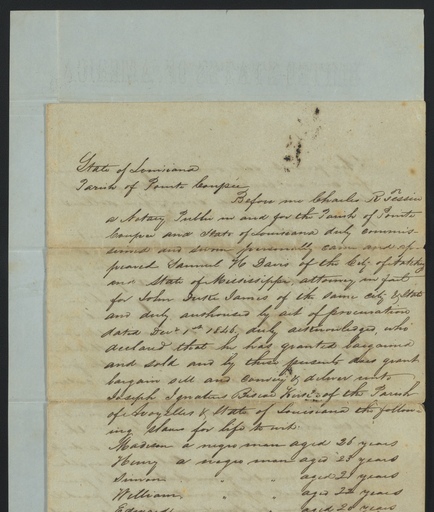 State of Louisiana
Parish of Pointe Coupée
Before me Charles R Tessier
a Notary Public in and for the Parish of Pointe
Coupée and State of Louisiana duly commis
sioned and sworn personally came and ap
peared Samuel H Davis of the City of Natchez
and State of Mississippi, attorney in fact
for John James of the same city & State
and duly authorised by act of procuration
dated Decr 1st 1846, duly acknowledged, who
declared that he has granted bargained
and sold and by these presents does grant
bargain sell and convey & deliver unto
Joseph Ignatius of the Parish
of Avoyelles & State of Louisiana the follow-
ing slaves for life to wit:
Madison a negro man aged 26 years
Henry a negro man aged 23 years
Simon " " aged 21 years
William " " aged 22 years
Edward " " aged 20 years